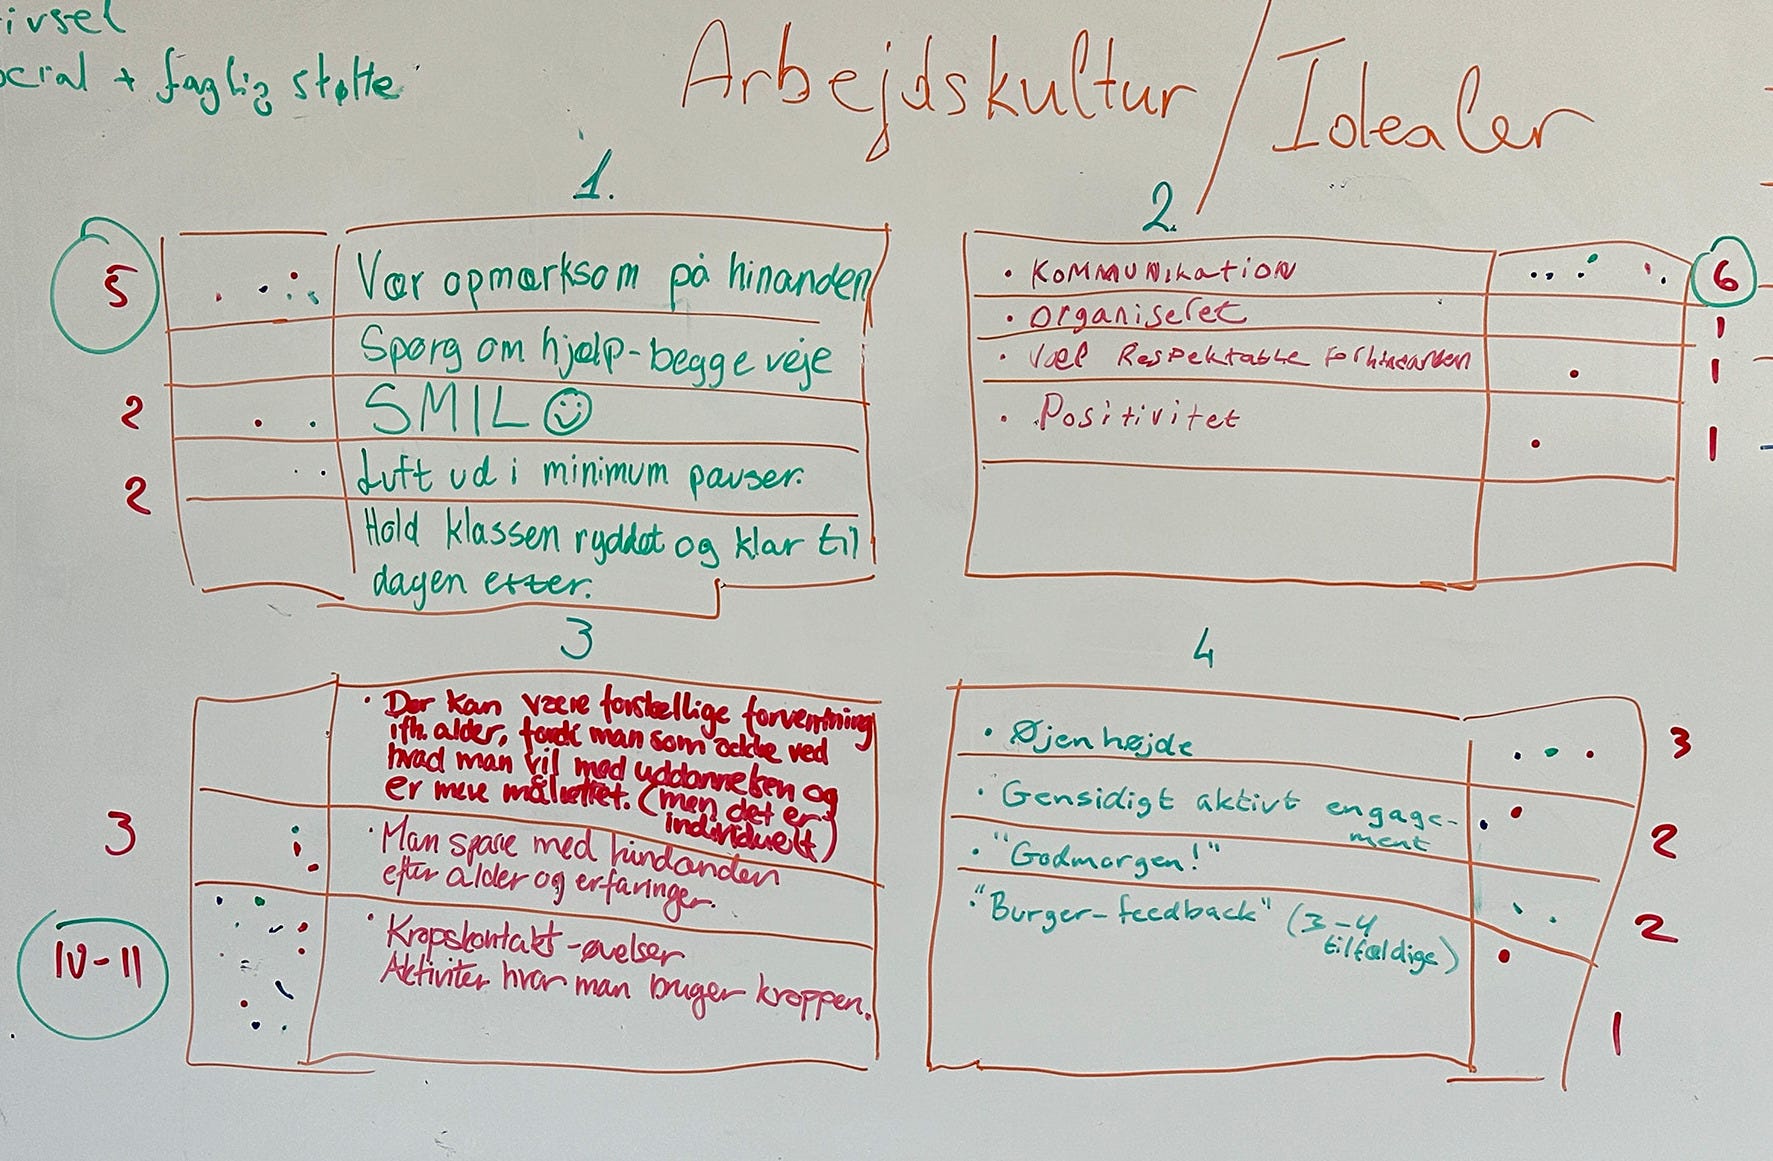 ivsel
ocial + faglig støtte
Arbejdskultur / Idealer
1.
5
Vær opmærksom på hinanden
Spørg om hjælp-begge veje
2
SMIL ☺
2
Luft ud i minimum pauser.
Hold klassen ryddet og klar til
dagen efter.
2.
• KOMMUNIKATION
6
• Organiseret
1
• Vær Respektable for hinanden
1
• Positivitet
1
3
• Der kan være forskellige forventning
ifh. alder, fordi man som ældre ved
hvad man vil med uddannelsen og
er mere målrettet. (men det er
individuelt)
3
• Man spare med hindanden
efter alder og erfaringer.
IV-11
• Kropskontakt-øvelser
Aktiviter hvor man bruger kroppen.
4
• Øjenhøjde
3
• Gensidigt aktivt engage-
ment
2
• "Godmorgen!"
• "Burger-feedback" (3-4
tilfældige)
2
1